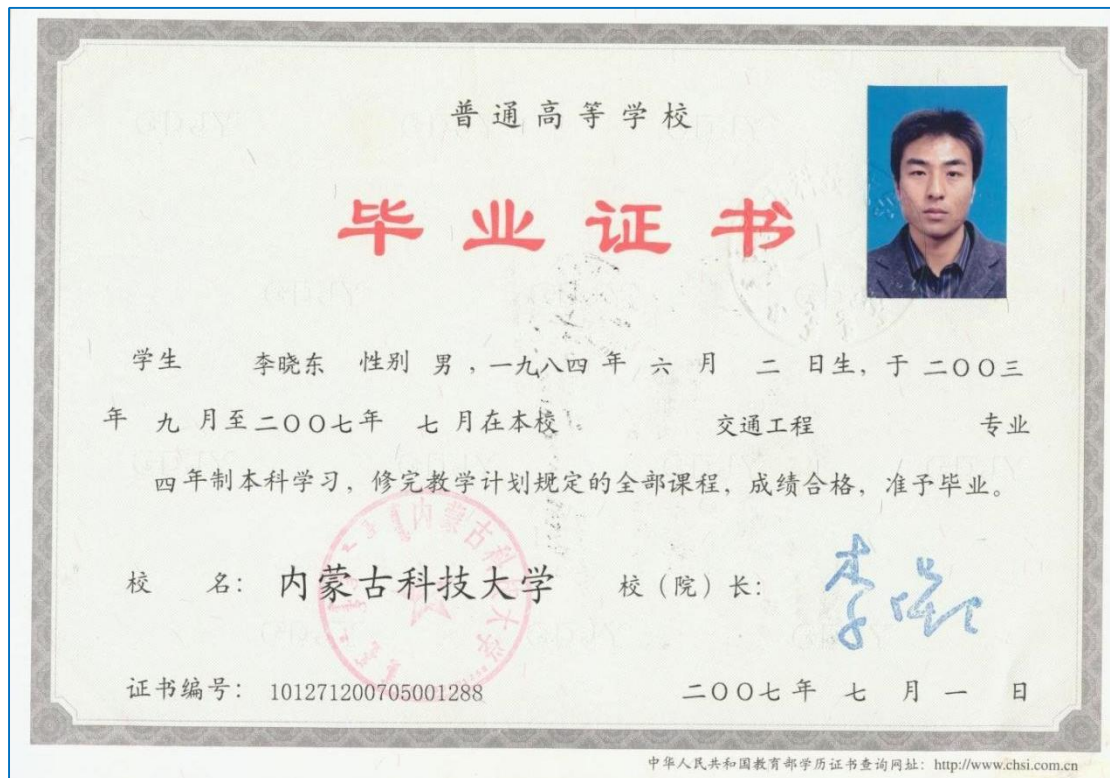 普通高等学校
毕业证书
学生 李晓东 性别 男，一九八四 年 六 月 二 日生，于 二〇〇三
年 九 月至二〇〇七年 七 月在本校 交通工程 专业
四年制本科学习，修完教学计划规定的全部课程，成绩合格，准予毕业。
校 名： 内蒙古科技大学 校（院）长：
内蒙古科技大学
证书编号： 101271200705001288 二〇〇七 年 七 月 一 日
中华人民共和国教育部学历证书查询网址：http://www.chsi.com.cn